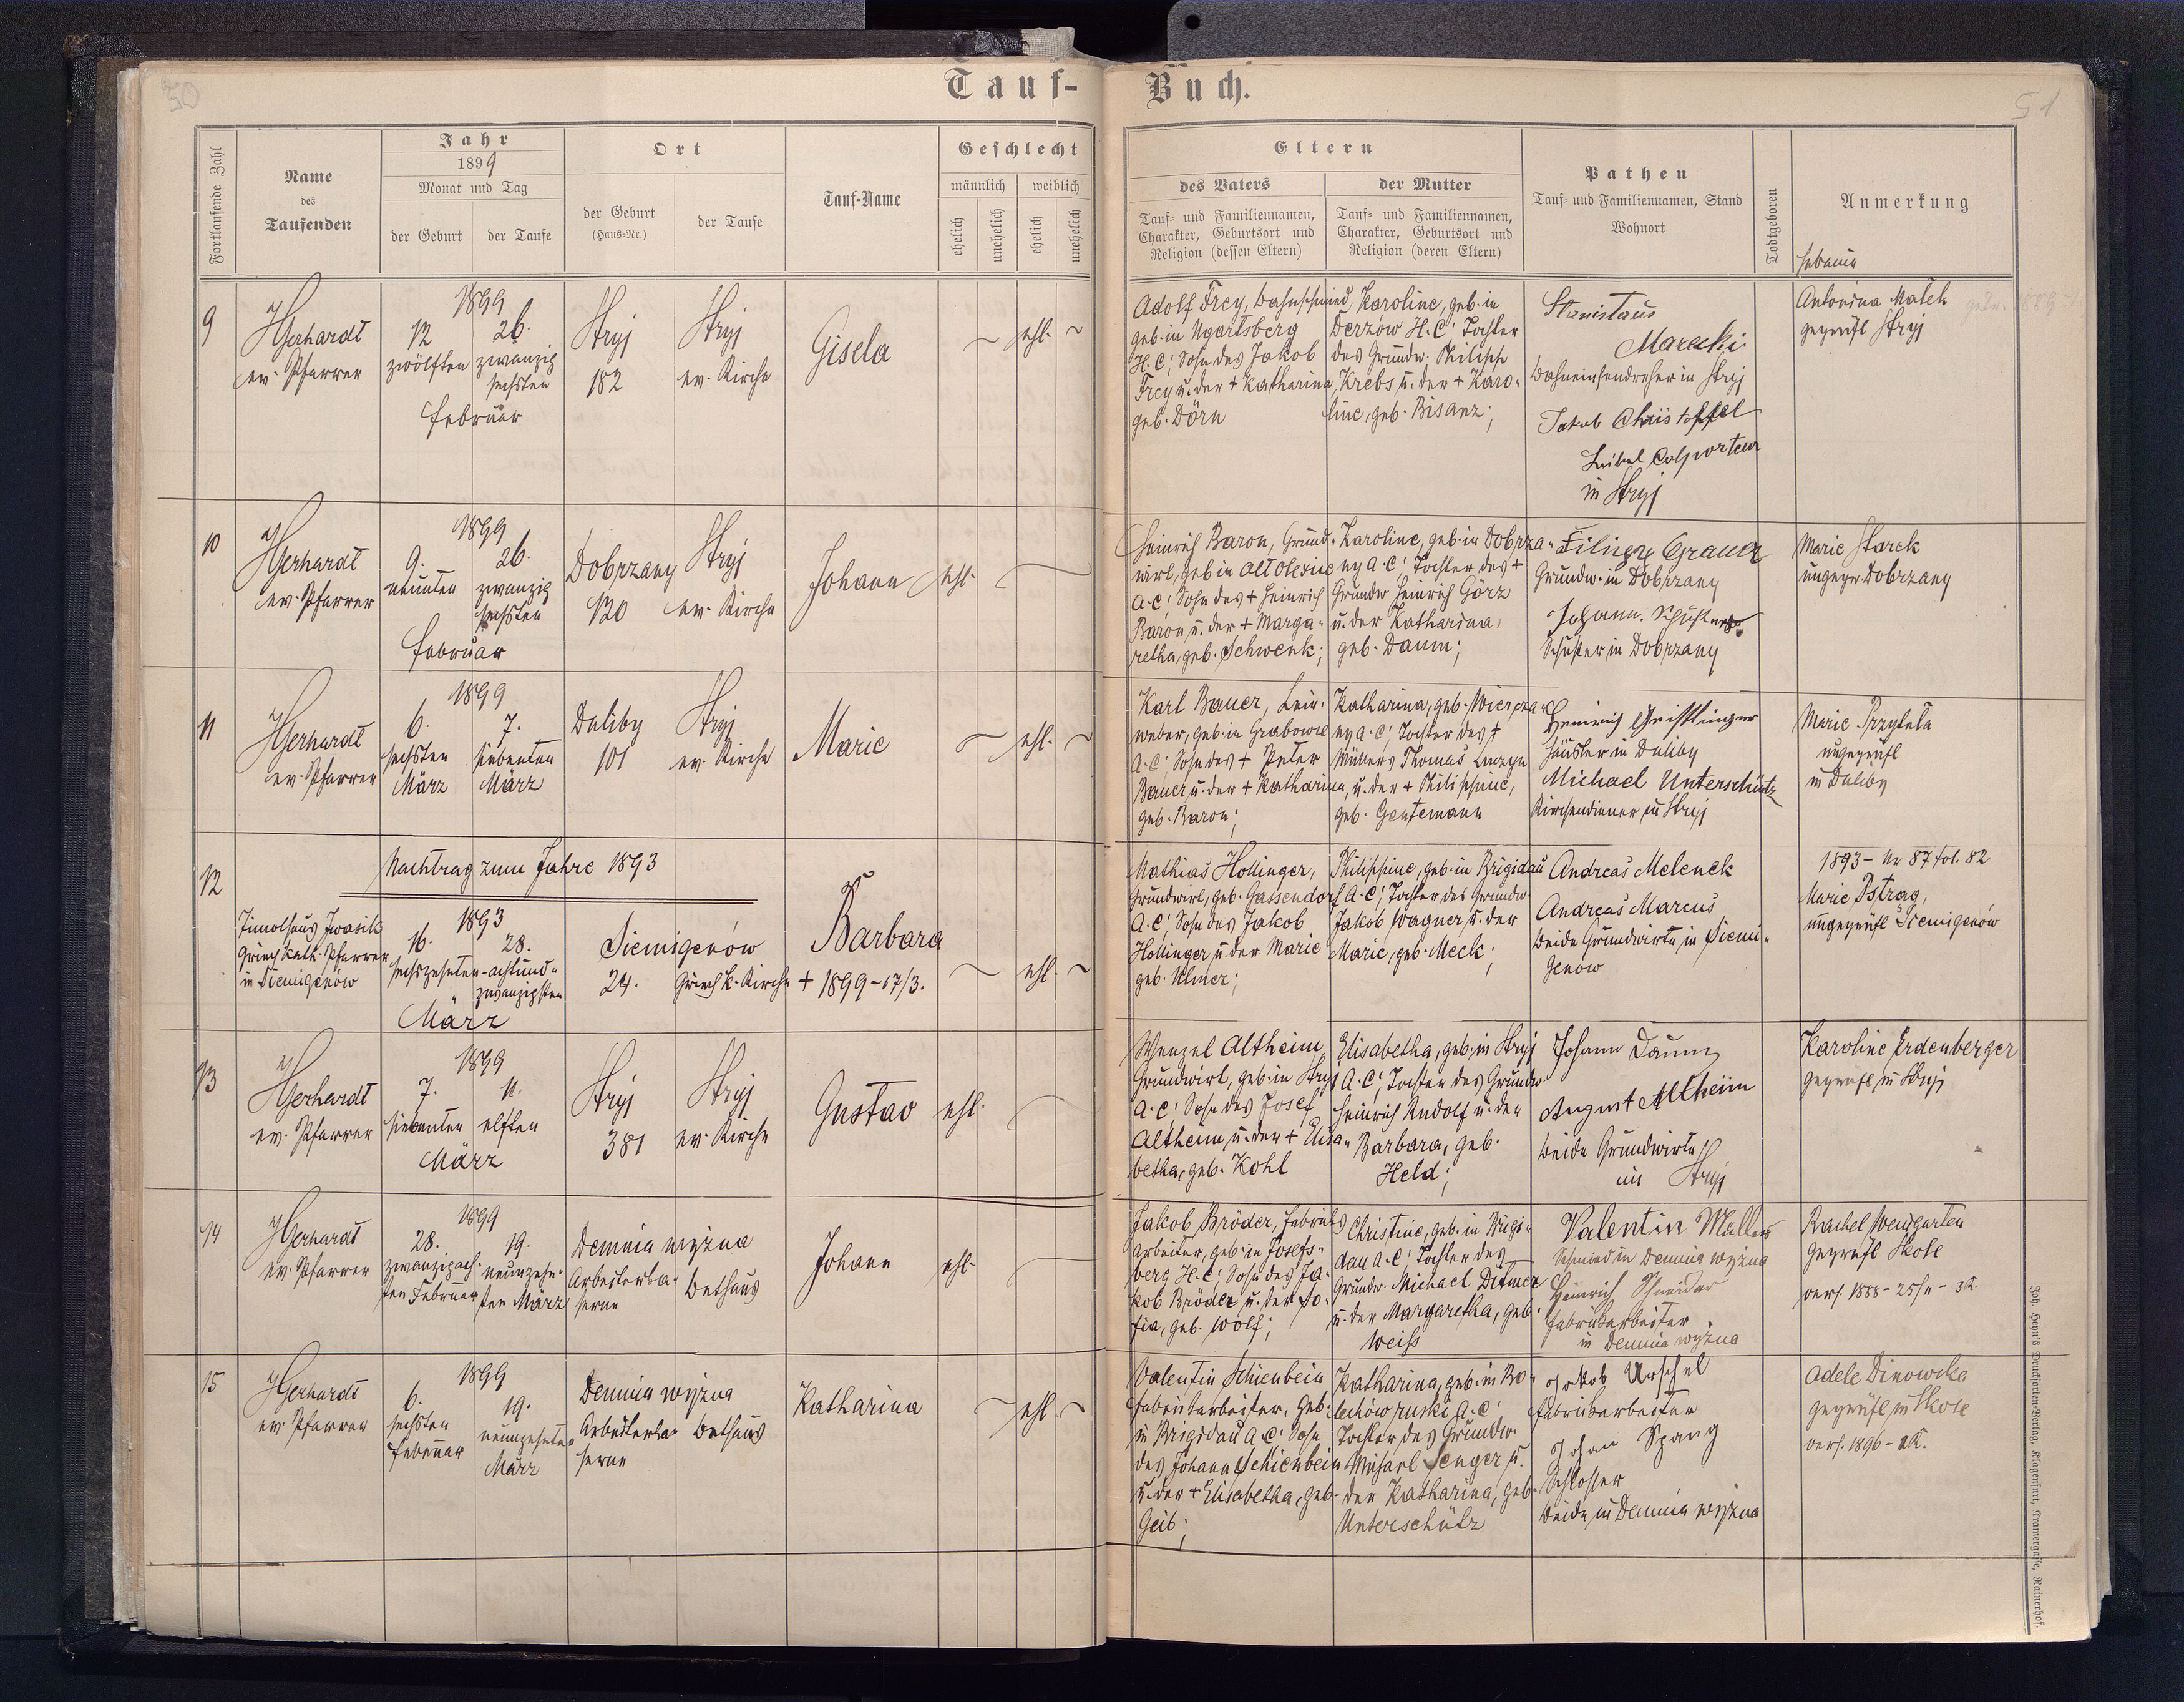 50
51
Tauf-
Buch.
Fortlaufende Zahl
Name
des
Taufenden
Jahr
1899
Monat und Tag
der Geburt
der Taufe
Ort
der Geburt
(Haus-Nr.)
der Taufe
Tauf-Name
Geschlecht
männlich
weiblich
ehelich
unehelich
ehelich
unehelich
Eltern
des Vaters
der Mutter
Tauf- und Familiennamen,
Charakter, Geburtsort und
Religion (dessen Eltern)
Tauf- und Familiennamen,
Charakter, Geburtsort und
Religion (deren Eltern)
Pathen
Tauf- und Familiennamen, Stand
Wohnort
Todtgeboren
Anmerkung
Hebamme
9
Gerhardt
ev. Pfarrer
1899
12
zwölften
26.
zwanzig
sechsten
Februar
Stryj
182
Stryj
ev. Kirche
Gisela
ehl.
Adolf Frey, Bahnschmied
geb. in Ugartsberg
H.C.; Sohn des Jakob
Frey u. der + Katharina
geb. Dörn
Karoline, geb. in
Derzów H.C.; Tochter
des Grundw. Philipp
Krebs u. der + Karo-
line, geb. Bisanz;
Stanislaus
Marecki
Bahneisendreher in Stryj
Jakob Christoffel
Bibel Colporteur
in Stryj
Antonina Matek
geprüft Stryj
10
Gerhardt
ev. Pfarrer
1899
9.
neunten
26.
zwanzig
sechsten
Februar
Dobrzany
120
Stryj
ev. Kirche
Johann
ehl.
Heinrich Baron, Grund-
wirt, geb. in Alt Olexice
A.C.; Sohn des + Heinrich
Baron u. der + Marga-
retha, geb. Schwenk;
Karoline, geb. in Dobrza-
ny A.C.; Tochter des +
Grundw. Heinrich Görz
u. der Katharina,
geb. Daum;
Grundw. in Dobrzany
Johann Schuster
Schuster in Dobrzany
Marie Starek
ungepr. Dobrzany
11
Gerhardt
ev. Pfarrer
1899
6.
sechsten
März
7.
siebenten
März
Duliby
101
Stryj
ev. Kirche
Marie
ehl.
Karl Bauer, Lein-
weber, geb. in Grabowce
A.C.; Sohn des + Peter
Bauer u. der + Katharina,
geb. Baron;
Katharina, geb. Wiercza-
ny A.C.; Tochter des +
Müllers Thomas Luczyn
u. der + Philippine,
geb. Gentemann
Heinrich Geistlinger
Häusler in Duliby
Michael Unterschütz
Kirchendiener in Stryj
Marie Przytula
ungeprüft
in Duliby
12
Nachtrag zum Jahre 1893
Timotheus Iwasik
Griech. kath. Pfarrer
in Siemigenów
1893
16.
sechszehnten
28.
achtund-
zwanzigsten
März
Siemigenów
24.
Griech. k. Kirche
Barbara
+ 1899-17/3.
ehl.
Mathias Hollinger,
Grundwirt, geb. Gassendorf
A.C.; Sohn des Jakob
Hollinger u. der Marie
geb. Ulmer;
Philippine, geb. in Brigidau
A.C.; Tochter des Grundw.
Jakob Wagner u. der
Marie, geb. Meck;
Andreas Melenek
Andreas Marcus
beide Grundwirte in Siemi-
genów
1893 - Nr 87 fol. 82
Marie Pstrag,
ungeprüft Siemigenów
13
Gerhardt
ev. Pfarrer
1899
7.
siebenten
11.
elften
März
Stryj
381
Stryj
ev. Kirche
Gustav
ehl.
Wenzel Altheim
Grundwirt, geb. in Stryj
A.C.; Sohn des Josef
Altheim u. der + Elisa-
betha, geb. Kohl
Elisabetha, geb. in Stryj
A.C.; Tochter des Grundw.
Heinrich Rudolf u. der
Barbara, geb.
Held;
Johann Daum
August Altheim
beide Grundwirte
in Stryj
Karoline Erdenberger
geprüft in Stryj
14
Gerhardt
ev. Pfarrer
1899
28.
zwanzigach-
ten Februar
19.
neunzehn-
ten März
Demnia wyzna
Arbeiterka-
serne
Bethaus
Johann
ehl.
Jakob Bröder, Fabriks
arbeiter, geb. in Josefs-
berg H.C.; Sohn des Ja-
kob Bröder u. der So-
fia, geb. Wolf;
Christine, geb. in Brigi-
dau A.C.; Tochter des
Grundw. Michael Ditmer
u. der Margaretha, geb.
Weiss
Valentin Müller
Schmied in Demnia wyzna
Heinrich Schneider
Fabriksarbeiter
in Demnia wyzna
Rachel Weingarten
geprüft Skole
15
Gerhardt
ev. Pfarrer
1899
6.
sechsten
Februar
19.
neunzehnten
März
Demnia wyzna
Arbeiterka-
serne
Bethaus
Katharina
ehl.
Valentin Schienbein
Fabriksarbeiter, geb.
in Brigidau A.C.; Sohn
des Johann Schienbein
u. der + Elisabetha, geb.
Geib;
Katharina, geb. in Bo-
lechów ruski A.C.
Tochter des Grundw.
Michael Senger u.
der Katharina, geb.
Unterschütz
Jakob Urschel
Fabriksarbeiter
Johan Spang
Schlosser
beide in Demnia wyzna
Adele Dinowska
geprüft in Skole
Joh. Heyn's Drucksorten-Verlag, Klagenfurt, Kramergasse, Rainerhof.